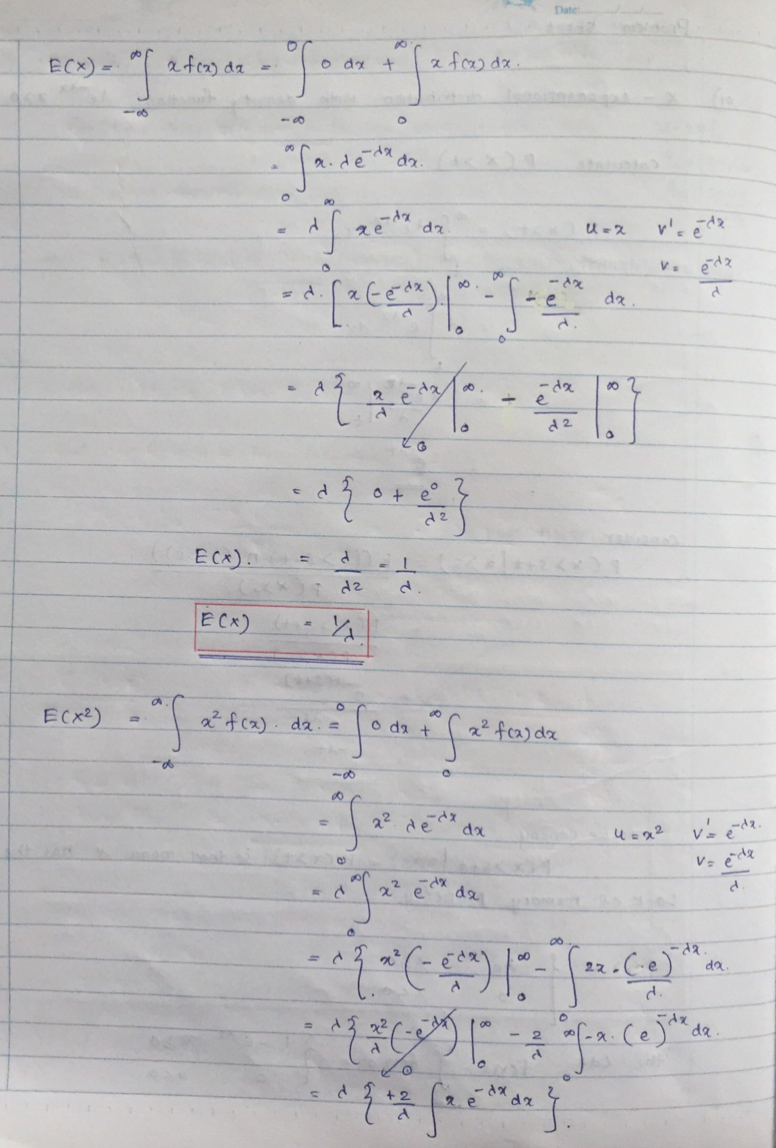 Date:
E(x) = ∞∫-∞ x f(x) dx = 0∫-∞ 0 dx + ∞∫0 x f(x) dx.
= ∞∫0 x. λe^-λx dx.
= λ ∞∫0 x e^-λx dx. u = x v' = e^-λx
v = e^-λx/λ
= λ. [ x (-e^-λx/λ).|∞0 - ∞∫0 -e^-λx/λ. dx.
= λ { x/λ e^-λx |∞0 - e^-λx/λ2 |∞0 }
0
= λ { 0 + e^0/λ2 }
E(x). = λ/λ2 = 1/λ.
E(x) = 1/λ.
E(x2) = ∞∫-∞ x2 f(x). dx. = 0∫-∞ 0 dx + ∞∫0 x2 f(x) dx
= ∞∫0 x2 λe^-λx dx u = x2 v' = e^-λx.
v = e^-λx/λ.
= λ ∞∫0 x2 e^-λx dx
= λ { x2 (-e^-λx/λ) |∞0 - ∞∫0 2x. (-e)^-λx/λ. dx.
= λ { x2/λ (-e^-λx) |∞0 - 2/λ ∞∫0 -x. (e)^-λx dx.
0
= λ { +2/λ ∫ x e^-λx dx }.